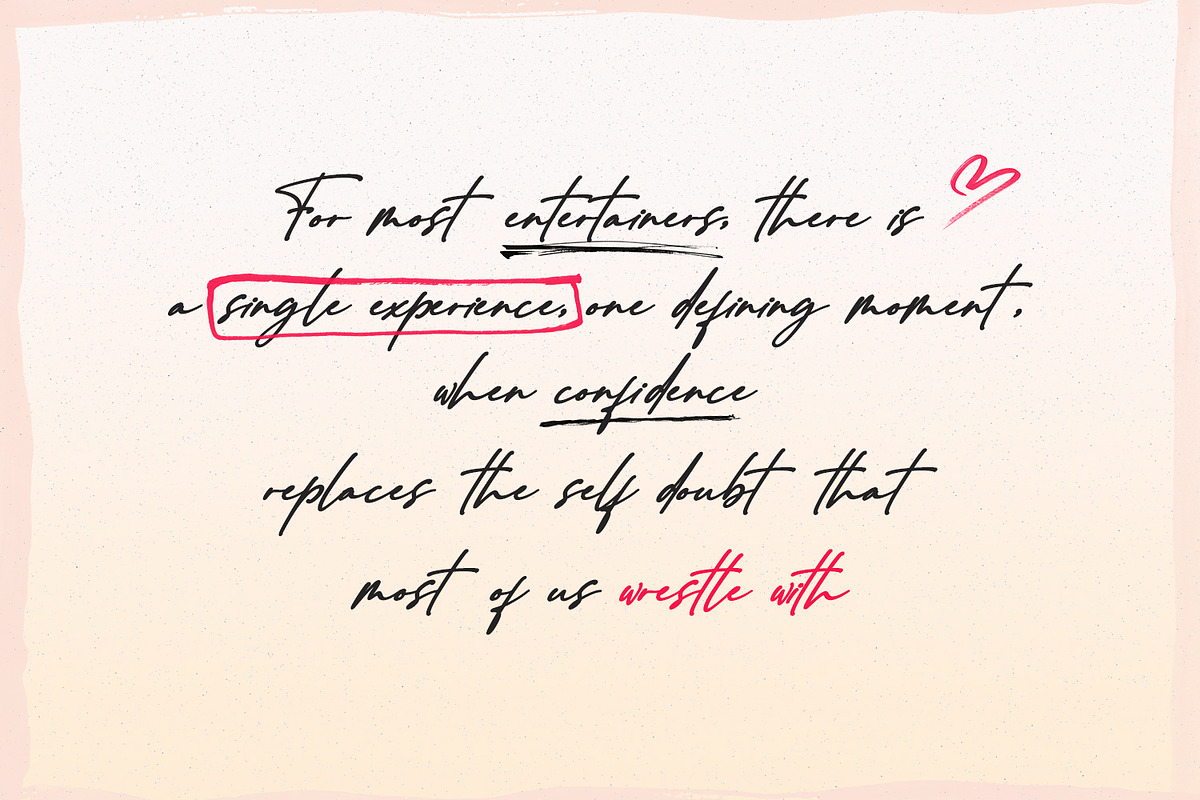 For most entertainers, there is
a single experience, one defining moment,
when confidence
replaces the self doubt that
most of us wrestle with